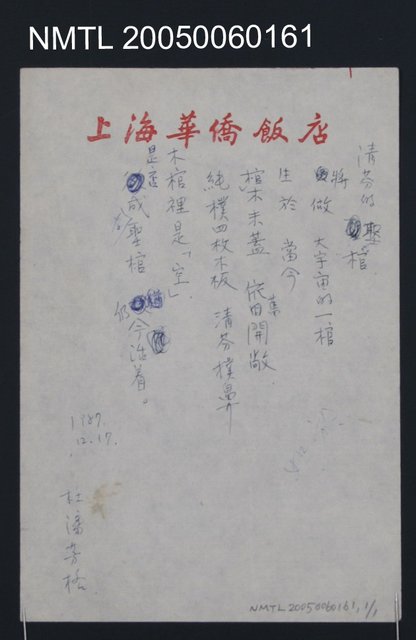 NMTL 20050060161
上海華僑飯店
清芬的聖棺
將做 大宇宙的一棺
生於 當今
棺木未蓋 依舊開敞
純樸四枚木板 清芬撲鼻
木棺裡是「空」
是否成聖棺 仍今活着。
1987.
12.17.
杜潘芳格
NMTL20050060161, 1/1